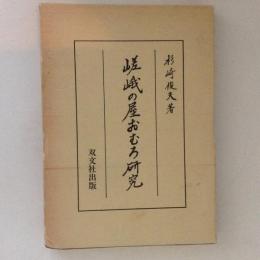 杉崎俊夫著
嵯峨の屋おむろ研究
双文社出版